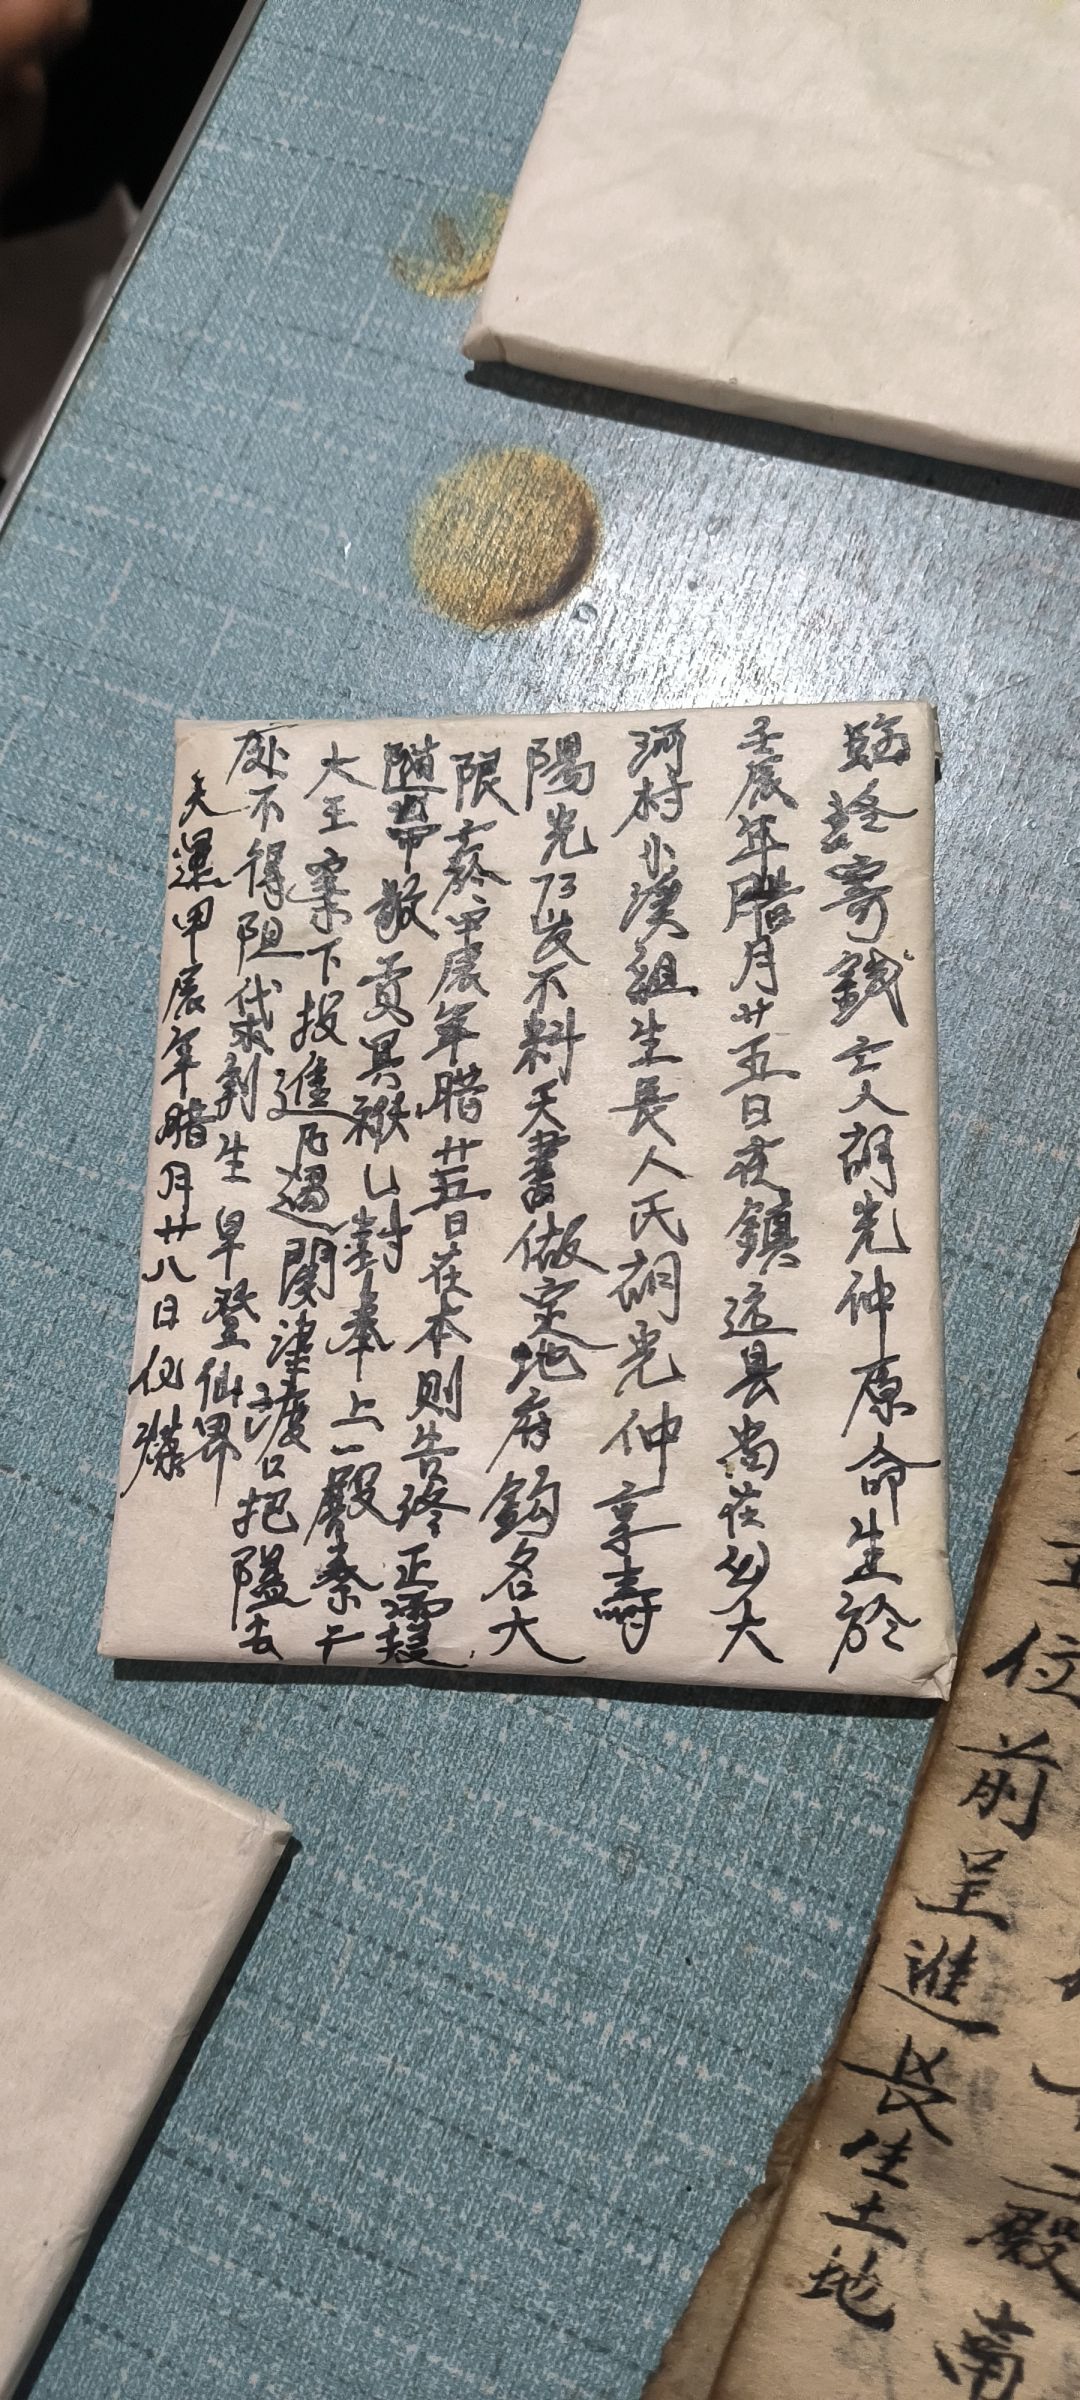 寄錢亡人胡光仲原命生於
壬辰年腊月廿五日在鎮遠县尚大
河村小溪組生長人氏胡光仲享壽
陽光73岁不料天書做定地府鈎名大
限於甲辰年腊廿五日在本則告终正
隨帶敬賣冥褓乙封奉上一殿秦广
大王案下投進凡過関津渡口把隘去
處不得阻代求到生早登仙界
天運甲辰年腊月廿八日化
位前呈進長生土地
二殿南